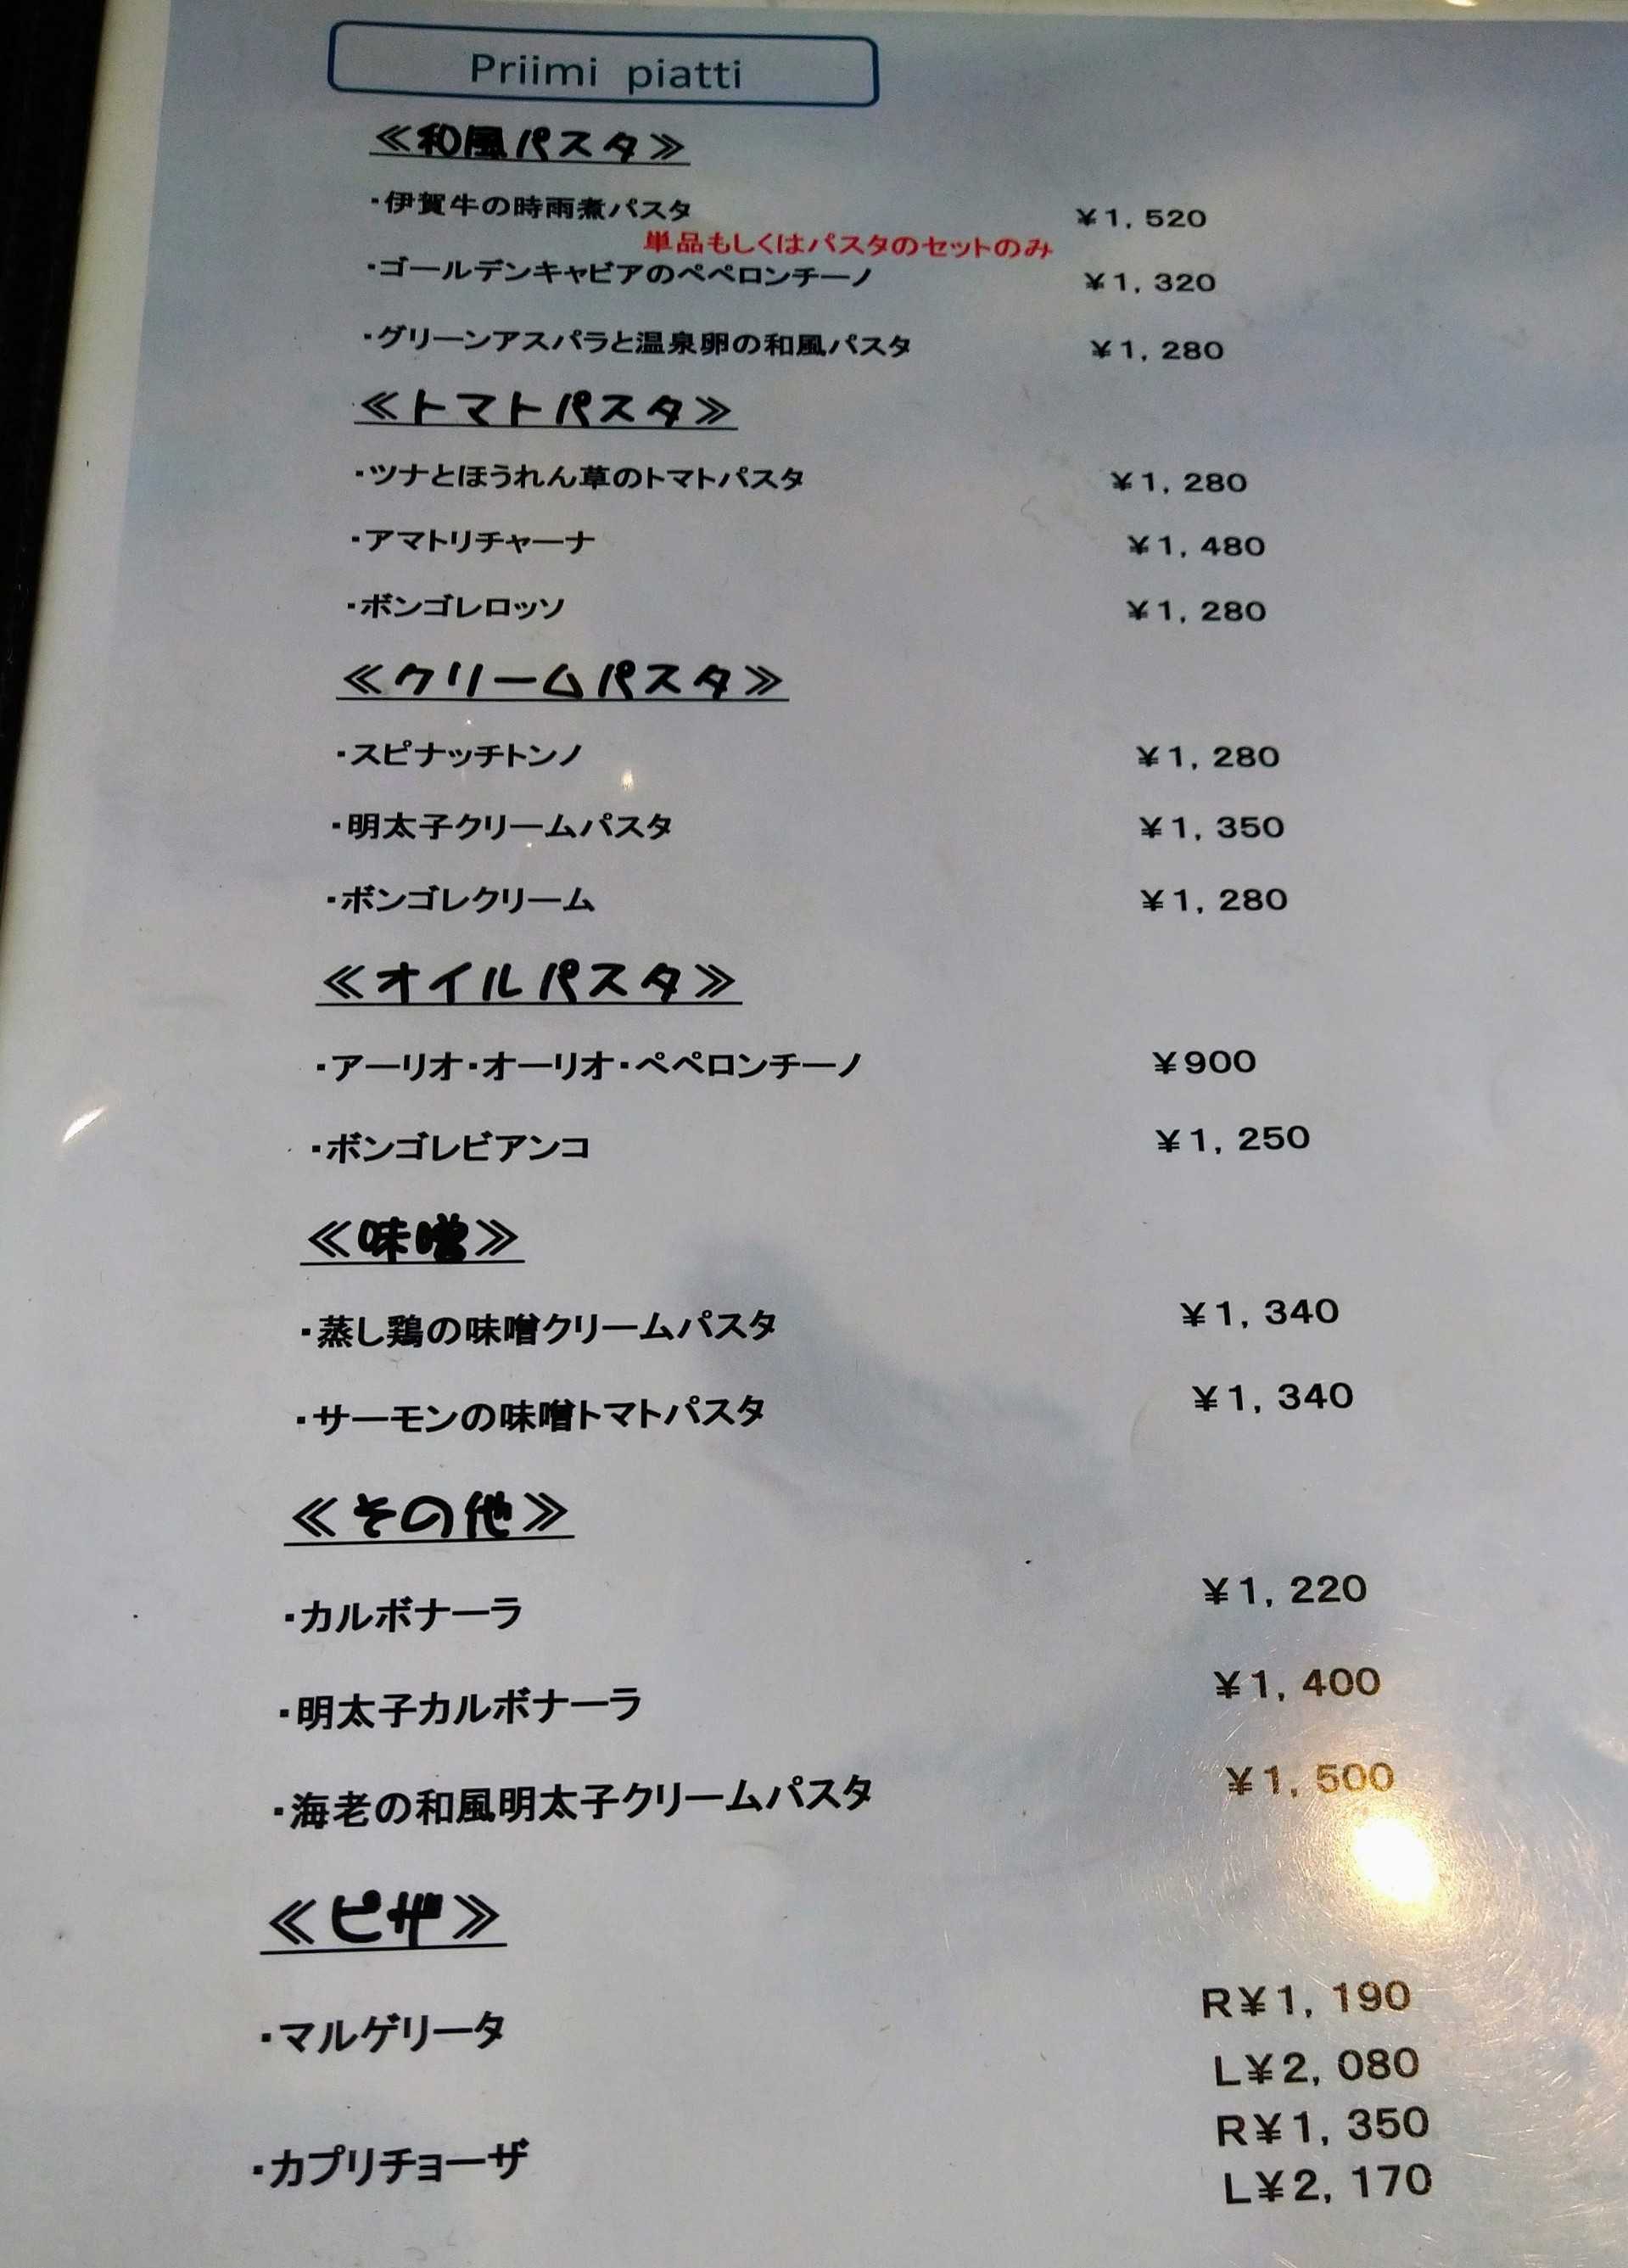 Priimi piatti
≪和風パスタ≫
・伊賀牛の時雨煮パスタ ¥1,520
単品もしくはパスタのセットのみ
・ゴールデンキャビアのペペロンチーノ ¥1,320
・グリーンアスパラと温泉卵の和風パスタ ¥1,280
≪トマトパスタ≫
・ツナとほうれん草のトマトパスタ ¥1,280
・アマトリチャーナ ¥1,480
・ボンゴレロッソ ¥1,280
≪クリームパスタ≫
・スピナッチトンノ ¥1,280
・明太子クリームパスタ ¥1,350
・ボンゴレクリーム ¥1,280
≪オイルパスタ≫
・アーリオ・オーリオ・ペペロンチーノ ¥900
・ボンゴレビアンコ ¥1,250
≪味噌≫
・蒸し鶏の味噌クリームパスタ ¥1,340
・サーモンの味噌トマトパスタ ¥1,340
≪その他≫
・カルボナーラ ¥1,220
・明太子カルボナーラ ¥1,400
・海老の和風明太子クリームパスタ ¥1,500
≪ピザ≫
・マルゲリータ R¥1,190
L¥2,080
・カプリチョーザ R¥1,350
L¥2,170